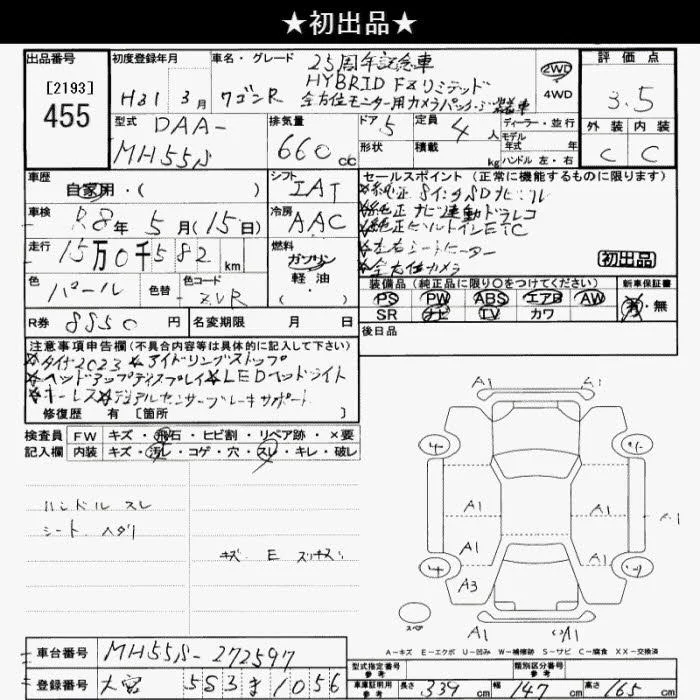 ★初出品★
出品番号
[2193]
455
初度登録年月
H31 3月
車名・グレード
25周年記念車
HYBRID FXリミテッド
ワゴンR 全方位モニター用カメラパッケージ装着車
2WD
4WD
評価点
3.5
外装 内装
C C
型式
DAA-
MH55S
排気量
660 cc
ドア 5
形状
定員 4人
積載 kg
ディーラー・並行
モデル
年式 年
ハンドル 左・右
車歴
自家用・( )
シフト
IAT
車検 R8年 5月(15日)
冷房
AAC
走行 15万0千582 km
燃料
ガソリン
軽油
・( )
色 パール
色替
色コード
ZVR
セールスポイント(正常に機能するものに限ります)
☆純正8インチSDナビ・フル
☆純正ナビ連動ドラレコ
☆純正ビルトインETC
☆左右シートヒーター
☆全方位カメラ
初出品
装備品(純正品に限り○をつけてください)
PS PW ABS エアB AW
SR ナビ TV カワ
新車保証書
有・無
R券 8850円
名変期限 月 日
後日品
注意事項申告欄(不具合内容等は具体的に記入して下さい)
☆タイヤ2023 ☆アイドリングストップ
☆ヘッドアップディスプレイ ☆LEDヘッドライト
☆キーレス ☆デュアルセンサーブレーキサポート
修復歴 有 [箇所 ]
検査員
記入欄
FW キズ・飛石・ヒビ割・リペア跡・×要
内装 キズ・汚レ・コゲ・穴・スレ・キレ・破レ
ハンドル スレ
シート ヘタリ
キズ E スリキズ
A1 A1
A1 A1 A1
A1 A1
A3
A1 A1
スペア
A-キズ E-エクボ U-凹み W-補修跡 S-サビ C-腐食 XX-交換済
車台番号 MH55S-272597
登録番号 大宮 583 ま 1056
型式指定番号
参考
類別区分番号
参考
車庫証明用
参考
長さ 339 cm 幅 147 cm 高さ 165 cm